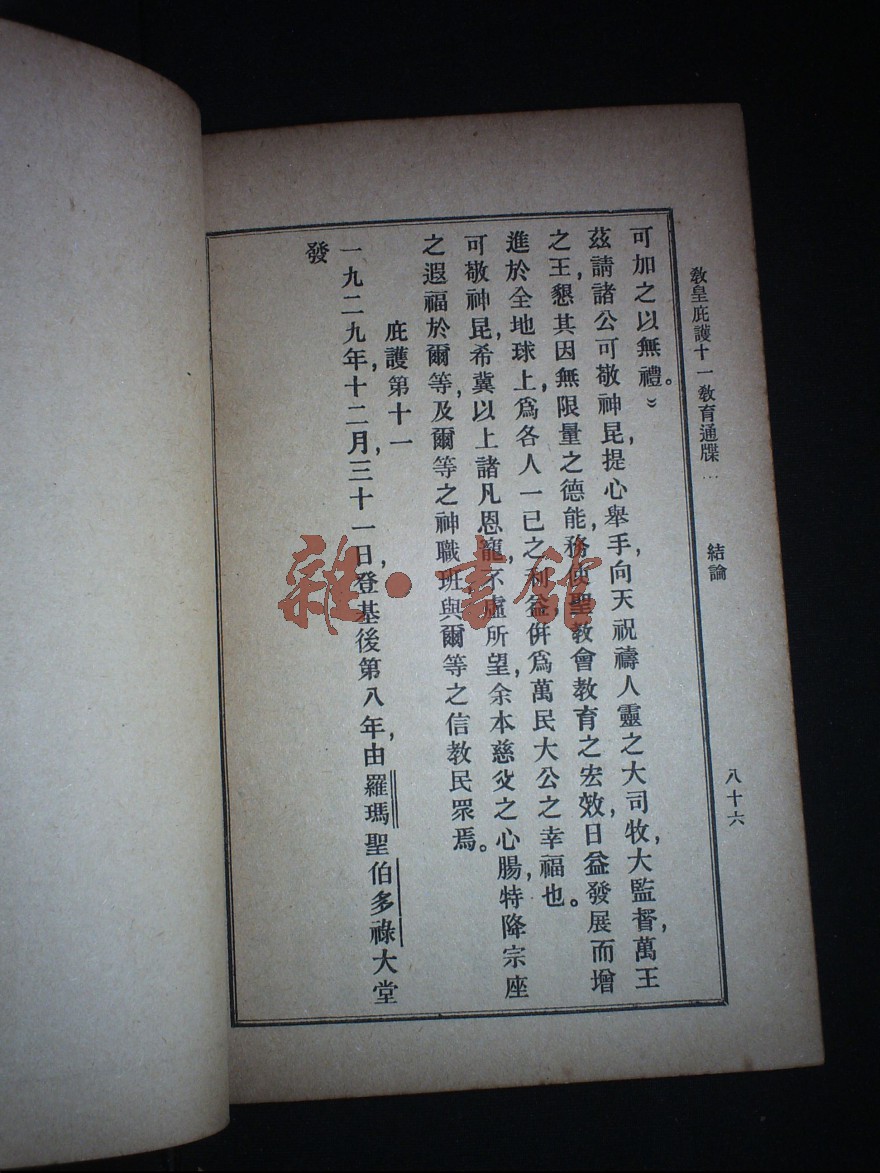 教皇庇護十一教育通牒… 結論 八十六
可加之以無禮。」
茲請諸公可敬神昆,提心舉手,向天祝禱人靈之大司牧,大監督,萬王
之王,懇其因無限量之德能,務使聖教會教育之宏效,日益發展而增
進於全地球上,爲各人一己之利益,倂爲萬民大公之幸福也。
可敬神昆,希冀以上諸凡恩寵,不虛所望,余本慈父之心腸,特降宗座
之遐福於爾等,及爾等之神職班與爾等之信教民眾焉。
庇護第十一
一九二九年,十二月,三十一日登基後第八年,由羅瑪聖伯多祿大堂
發
雜·書館